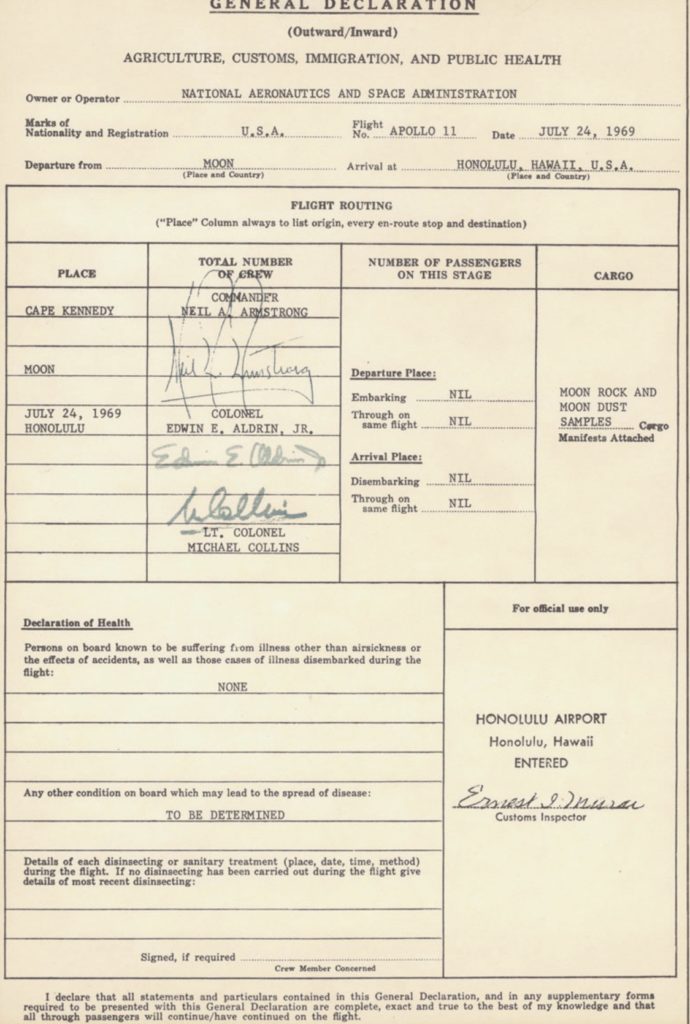 GENERAL DECLARATION
(Outward/Inward)
AGRICULTURE, CUSTOMS, IMMIGRATION, AND PUBLIC HEALTH
Owner or Operator NATIONAL AERONAUTICS AND SPACE ADMINISTRATION
Marks of
Nationality and Registration U.S.A. Flight No. APOLLO 11 Date JULY 24, 1969
Departure from MOON Arrival at HONOLULU, HAWAII, U.S.A.
(Place and Country) (Place and Country)
FLIGHT ROUTING
("Place" Column always to list origin, every en-route stop and destination)
PLACE
TOTAL NUMBER
OF CREW
NUMBER OF PASSENGERS
ON THIS STAGE
CARGO
CAPE KENNEDY
MOON
JULY 24, 1969
HONOLULU
COMMANDER
NEIL A. ARMSTRONG
Neil A. Armstrong
COLONEL
EDWIN E. ALDRIN, JR.
Edwin E. Aldrin Jr
M Collins
LT. COLONEL
MICHAEL COLLINS
Departure Place:
Embarking NIL
Through on
same flight NIL
Arrival Place:
Disembarking NIL
Through on
same flight NIL
MOON ROCK AND
MOON DUST
SAMPLES Cargo
Manifests Attached
Declaration of Health
Persons on board known to be suffering from illness other than airsickness or
the effects of accidents, as well as those cases of illness disembarked during the
flight:
NONE
Any other condition on board which may lead to the spread of disease:
TO BE DETERMINED
Details of each disinsecting or sanitary treatment (place, date, time, method)
during the flight. If no disinsecting has been carried out during the flight give
details of most recent disinsecting:
Signed, if required
Crew Member Concerned
For official use only
HONOLULU AIRPORT
Honolulu, Hawaii
ENTERED
Ernest I. Murai
Customs Inspector
I declare that all statements and particulars contained in this General Declaration, and in any supplementary forms
required to be presented with this General Declaration are complete, exact and true to the best of my knowledge and that
all through passengers will continue/have continued on the flight.